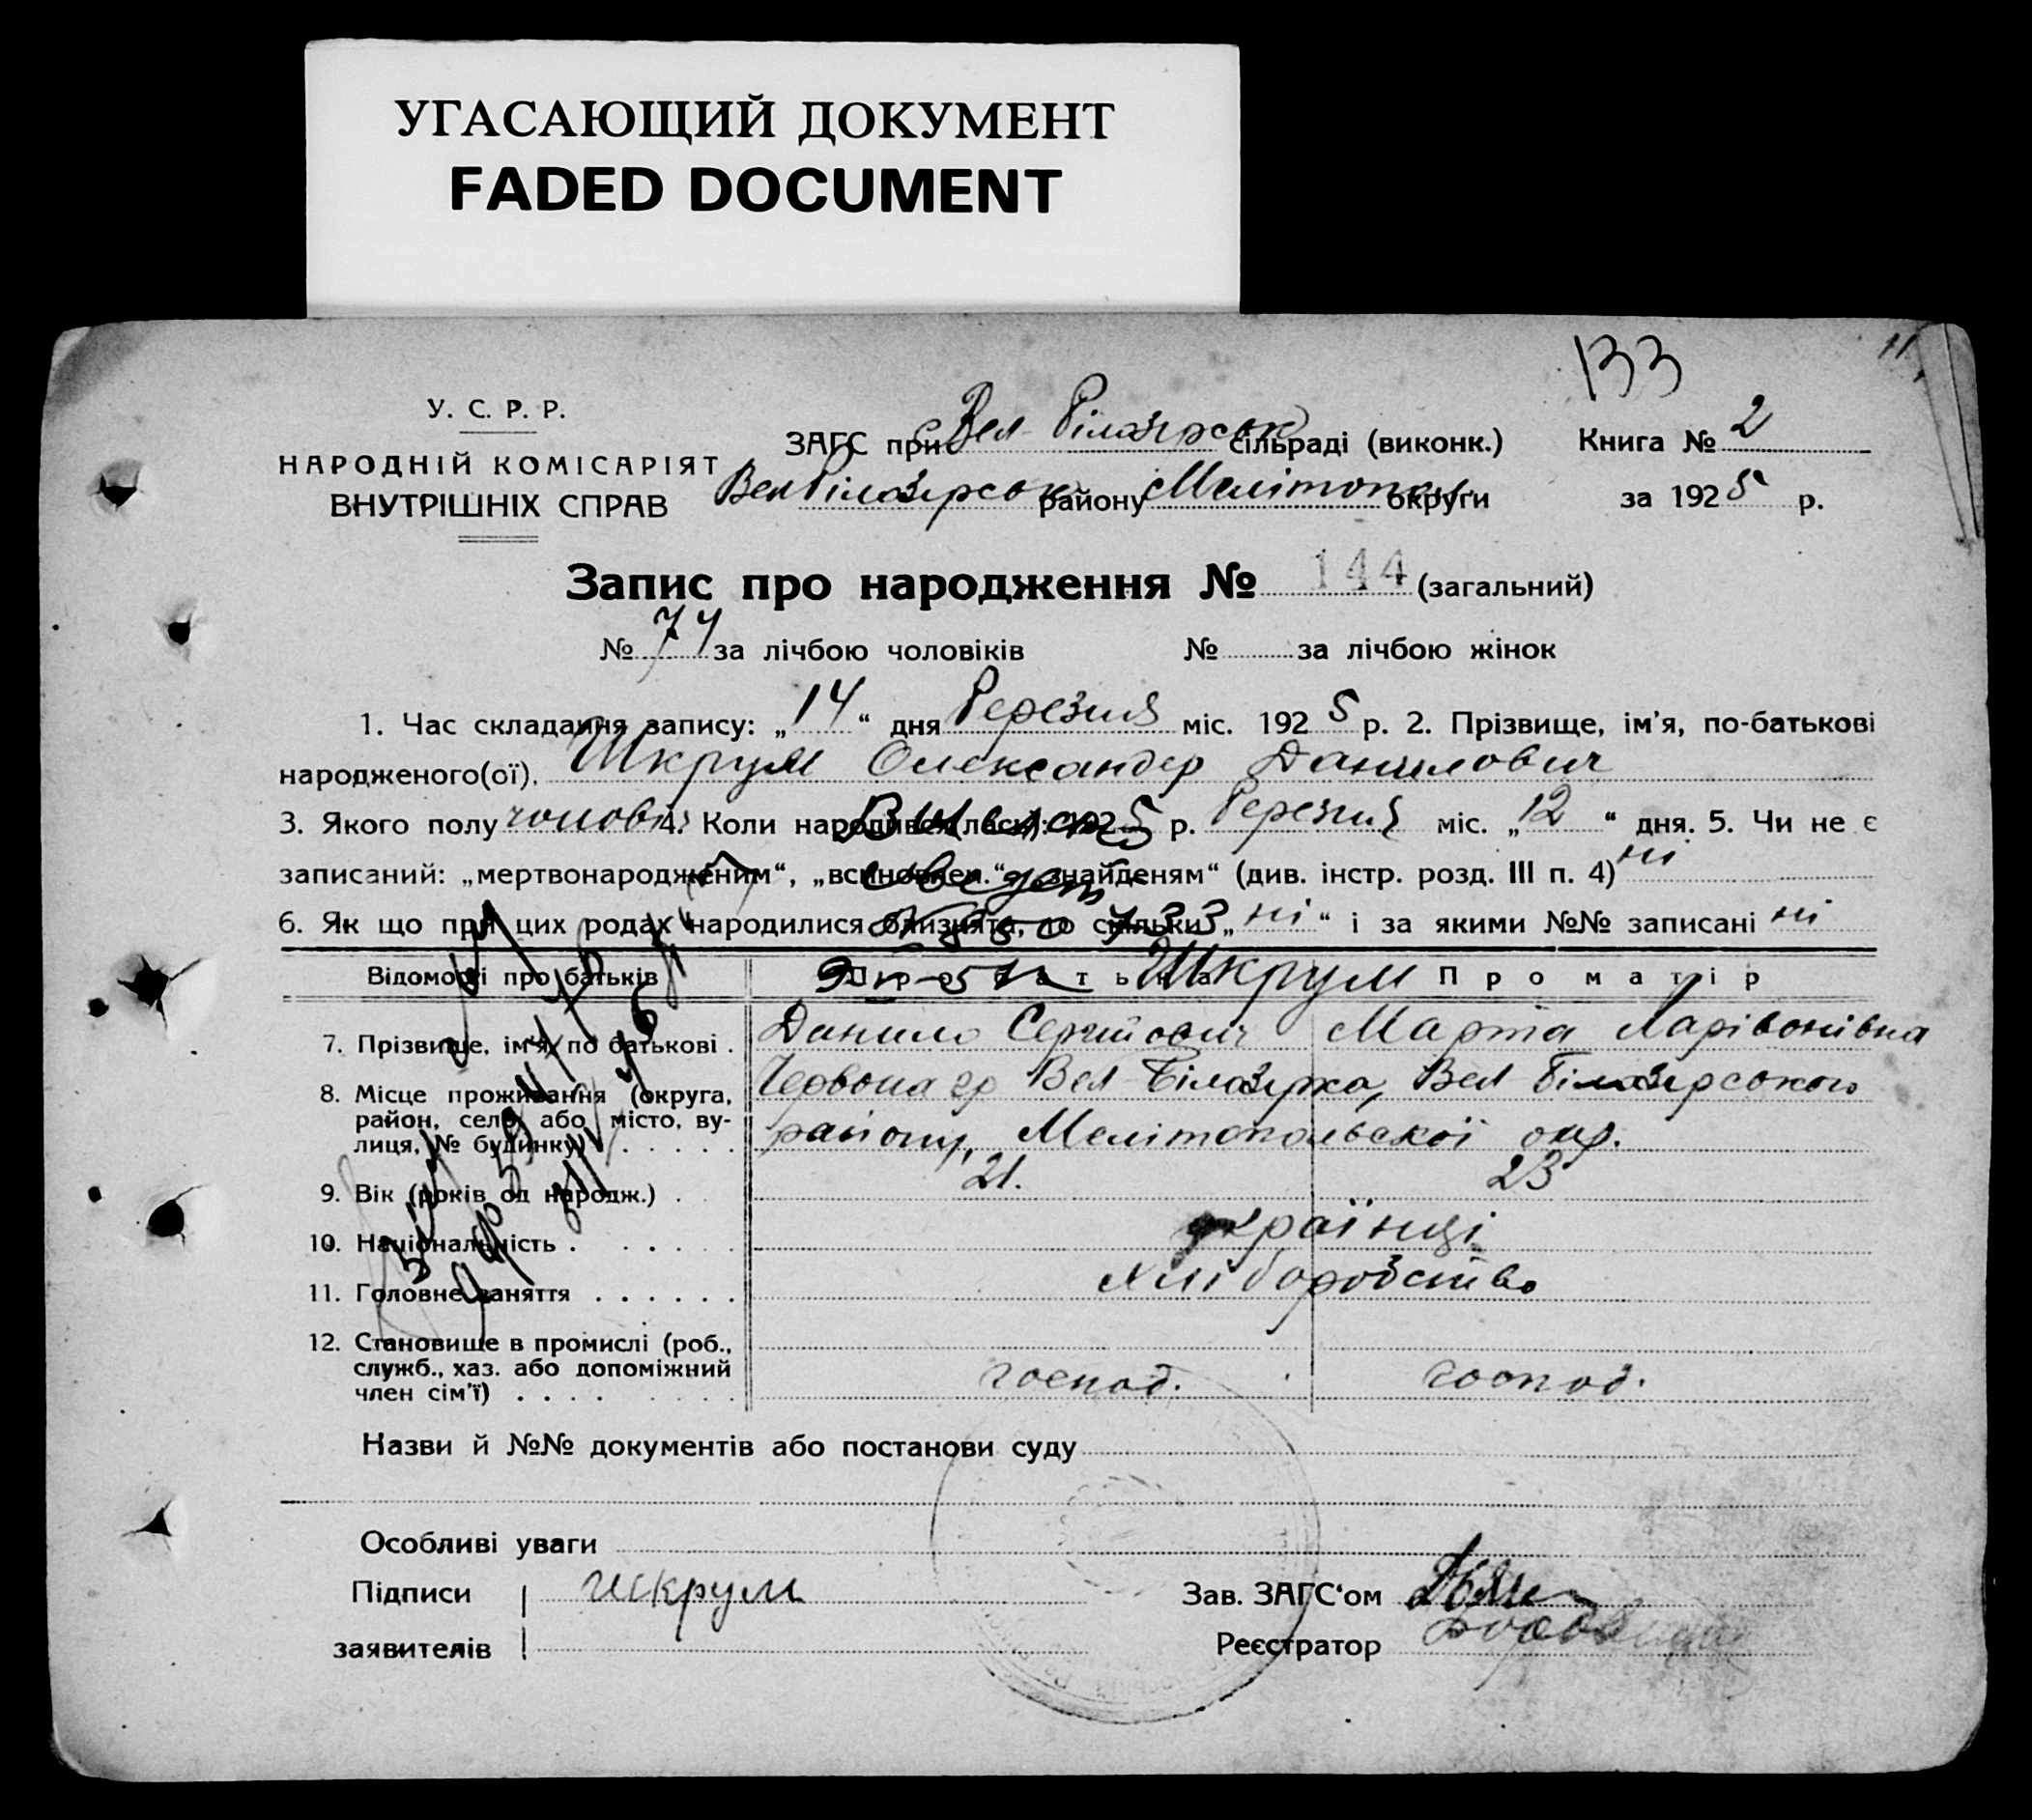 УГАСАЮЩИЙ ДОКУМЕНТ
FADED DOCUMENT
133
11
У. С. Р. Р.
НАРОДНІЙ КОМІСАРІЯТ
ВНУТРІШНІХ СПРАВ
ЗАГС при Вел-Білозірськ сільраді (виконк.) Книга № 2
Вел Білозірськ району Мелітопол. округи за 1925 р.
Запис про народження № 144 (загальний)
№ 74 за лічбою чоловіків № за лічбою жінок
1. Час складання запису: „14“ дня Березня міс. 1925 р. 2. Прізвище, ім’я, по-батькові
народженого(ої). Шкрум Олександер Данилович
3. Якого полу чолов 4. Коли народився(лась): 1925 р. Березня міс. „12“ дня. 5. Чи не є
записаний: „мертвонародженим“, „всиновлен.“, „знайденям“ (див. інстр. розд. III п. 4) ні
6. Як що при цих родах народилися близнята, то скільки „ні“ і за якими №№ записані ні
Відомості про батьків Про батька Шкрум Про матір
7. Прізвище, ім’я, по батькові . Данило Сергійович Марта Ларівонівна
8. Місце проживання (округа, Червона гр Вел-Білозірка, Вел Білозірського
район, село або місто, ву-
лиця, № будинку) . . . . . району, Мелітопольської окр.
9. Вік (років од народж.) . . 21. 23
10. Національність . . . . . . українці
11. Головне заняття . . . . . . хліборобство
12. Становище в промислі (роб.,
служб., хаз. або допоміжний
член сім’ї) . . . . . . . . господ. господ.
Назви й №№ документів або постанови суду
Особливі уваги
Підписи Шкрум Зав. ЗАГС‘ом
заявителів Реєстратор